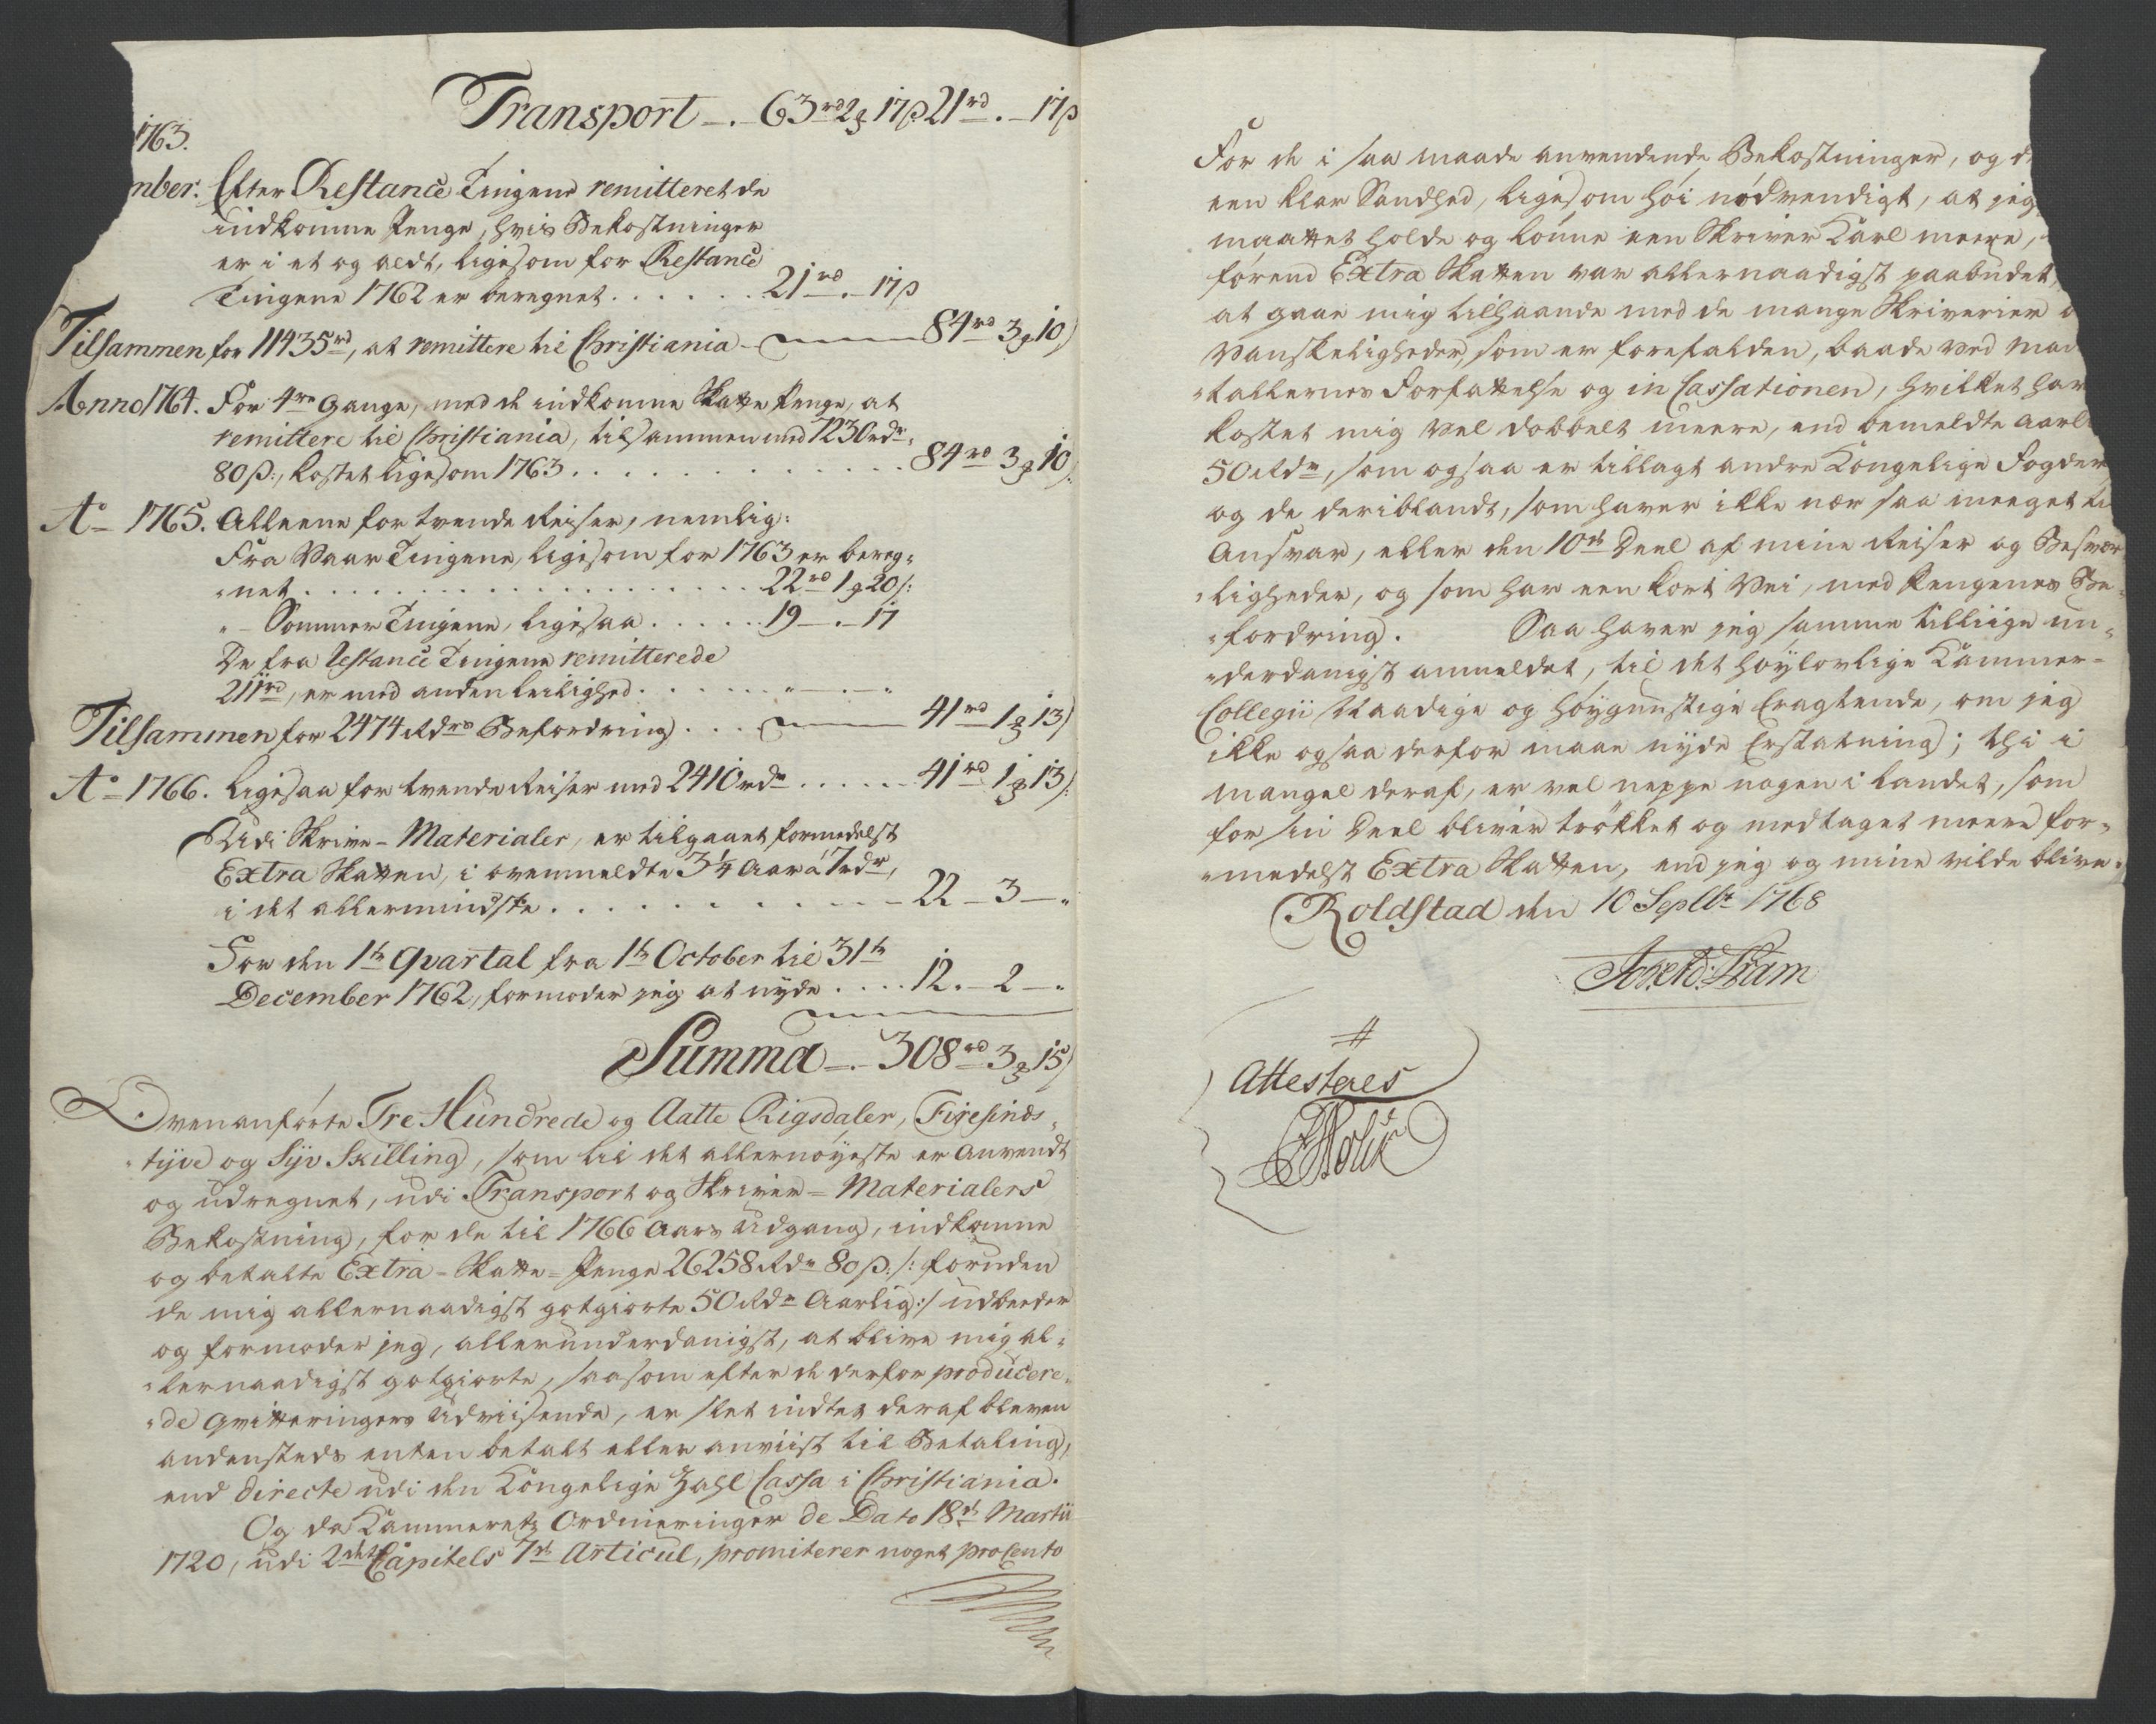 Transport -.- 63 rd 2 ʒ 17 ß 21 rd . - 17 ß
1763.
mber. Efter Restance Tingene remitteret de
indkomne Penge, hvis Bekostninger
er i et og aldt, ligesom for Restance
Tingene 1762 er beregnet . . . . . . 21 rd . - 17 ß
Tilsammen for 11435 rd, at remittere til Christiania - 84 rd 3 ʒ 10 /
Anno 1764. For 4re Gange, med de indkomne Skatte Penge, at
remittere til Christiania, tilsammen med 7230 rdr
80 ß:, kostet ligesom 1763 . . . . . . . 84 rd 3 ʒ 10 /:
Ao 1765. Alleene for tvende Reiser, nemlig:
Fra Vaar Tingene, ligesom for 1763 er bereg-
"net . . . . . . . . . . . . . 22 rd 1 ʒ 20 /:
" - Sommer Tingene, ligesaa . . . . . 19 - . - 17
De fra Restance Tingene remitterede
211 rd, er med anden Leilighed . . . . . . " - . - "
Tilsammen for 2474 Rdrs Befordring . . . 41 rd 1 ʒ 13 /
Ao 1766. Ligesaa for tvende Reiser med 2410 rdr . . . . . . 41 rd 1 ʒ 13 /:
Udi Skrive-Materialer, er tilgaaet formedelst
Extra Skatten, i ovenmeldte 3 1/4 Aar á 7 rdr,
i det allermindste . . . . . . . . . . 22 - 3 - "
For den 1te Qvartal fra 1te October til 31te
December 1762, formoder jeg at nyde . . . . 12. - 2 - "
Summa -.- 308 rd 3 ʒ 15 /
Ovenanførte Tre Hundrede og Aatte Rigsdaler, Firesinds-
"tyve og Syv Skilling, som til det allernøyeste er anvendt
og udregnet, udi Transport og Skriver-Materialers
Bekostning, for de til 1766 Aars Udgang, indkomne
og betalte Extra-Skatte-Penge 26258 Rdr 80 ß: /: foruden
de mig allernaadigst gotgiorte 50 Rdr Aarlig :/ udbeeder
og formoder jeg, allerunderdanigst, at blive mig al-
"lernaadigst gotgiorte, saasom efter de derfor producere-
"de Qvitteringers Udviisende, er slet indtet deraf bleven
andensteds enten betalt eller anviist til Betaling,
end directe udi den Kongelige Zahl Cassa i Christiania.
Og da Kammerets Ordineringer de Dato 18de Martii
1720, udi 2det Capitels 7de Articul, promiterer noget procento
For de i saa maade anvendende Bekostninger, og d
een klar Sandhed, ligesom høi nødvendigt, at jeg
maattet holde og lønne een Skriver Karl meere,
førend Extra Skatten var allernaadigst paabudet,
at gaae mig tilhaande med de mange Skriverier
Vanskeligheder, som er forefalden, baade ved Man
"tallernes Forfattelse og in Cassationen, hvilket har
kostet mig vel dobbelt meere, end bemeldte aarl
50 Rdr, som ogsaa er tillagt andre Kongelige Fogder
og de deriblandt, som haver ikke nær saa meeget til
Ansvar, eller den 10de Deel af mine Reiser og Besvær
"ligheder, og som har een kort Vei, med Pengenes Be-
"fordring. Saa haver jeg samme tilliige un-
"derdanigst anmeldet, til det høylovlige Cammer-
Collegii Naadige og høygunstige Eragtende, om jeg
ikke ogsaa derfor maae nyde Erstatning; thi i
mangel deraf, er vel neppe nogen i Landet, som
for sin Deel bliver trøkket og medtaget meere for-
"medelst Extra Skatten, end jeg og mine vilde blive.
Roldstad den 10 Septbr 1768
Attesteres